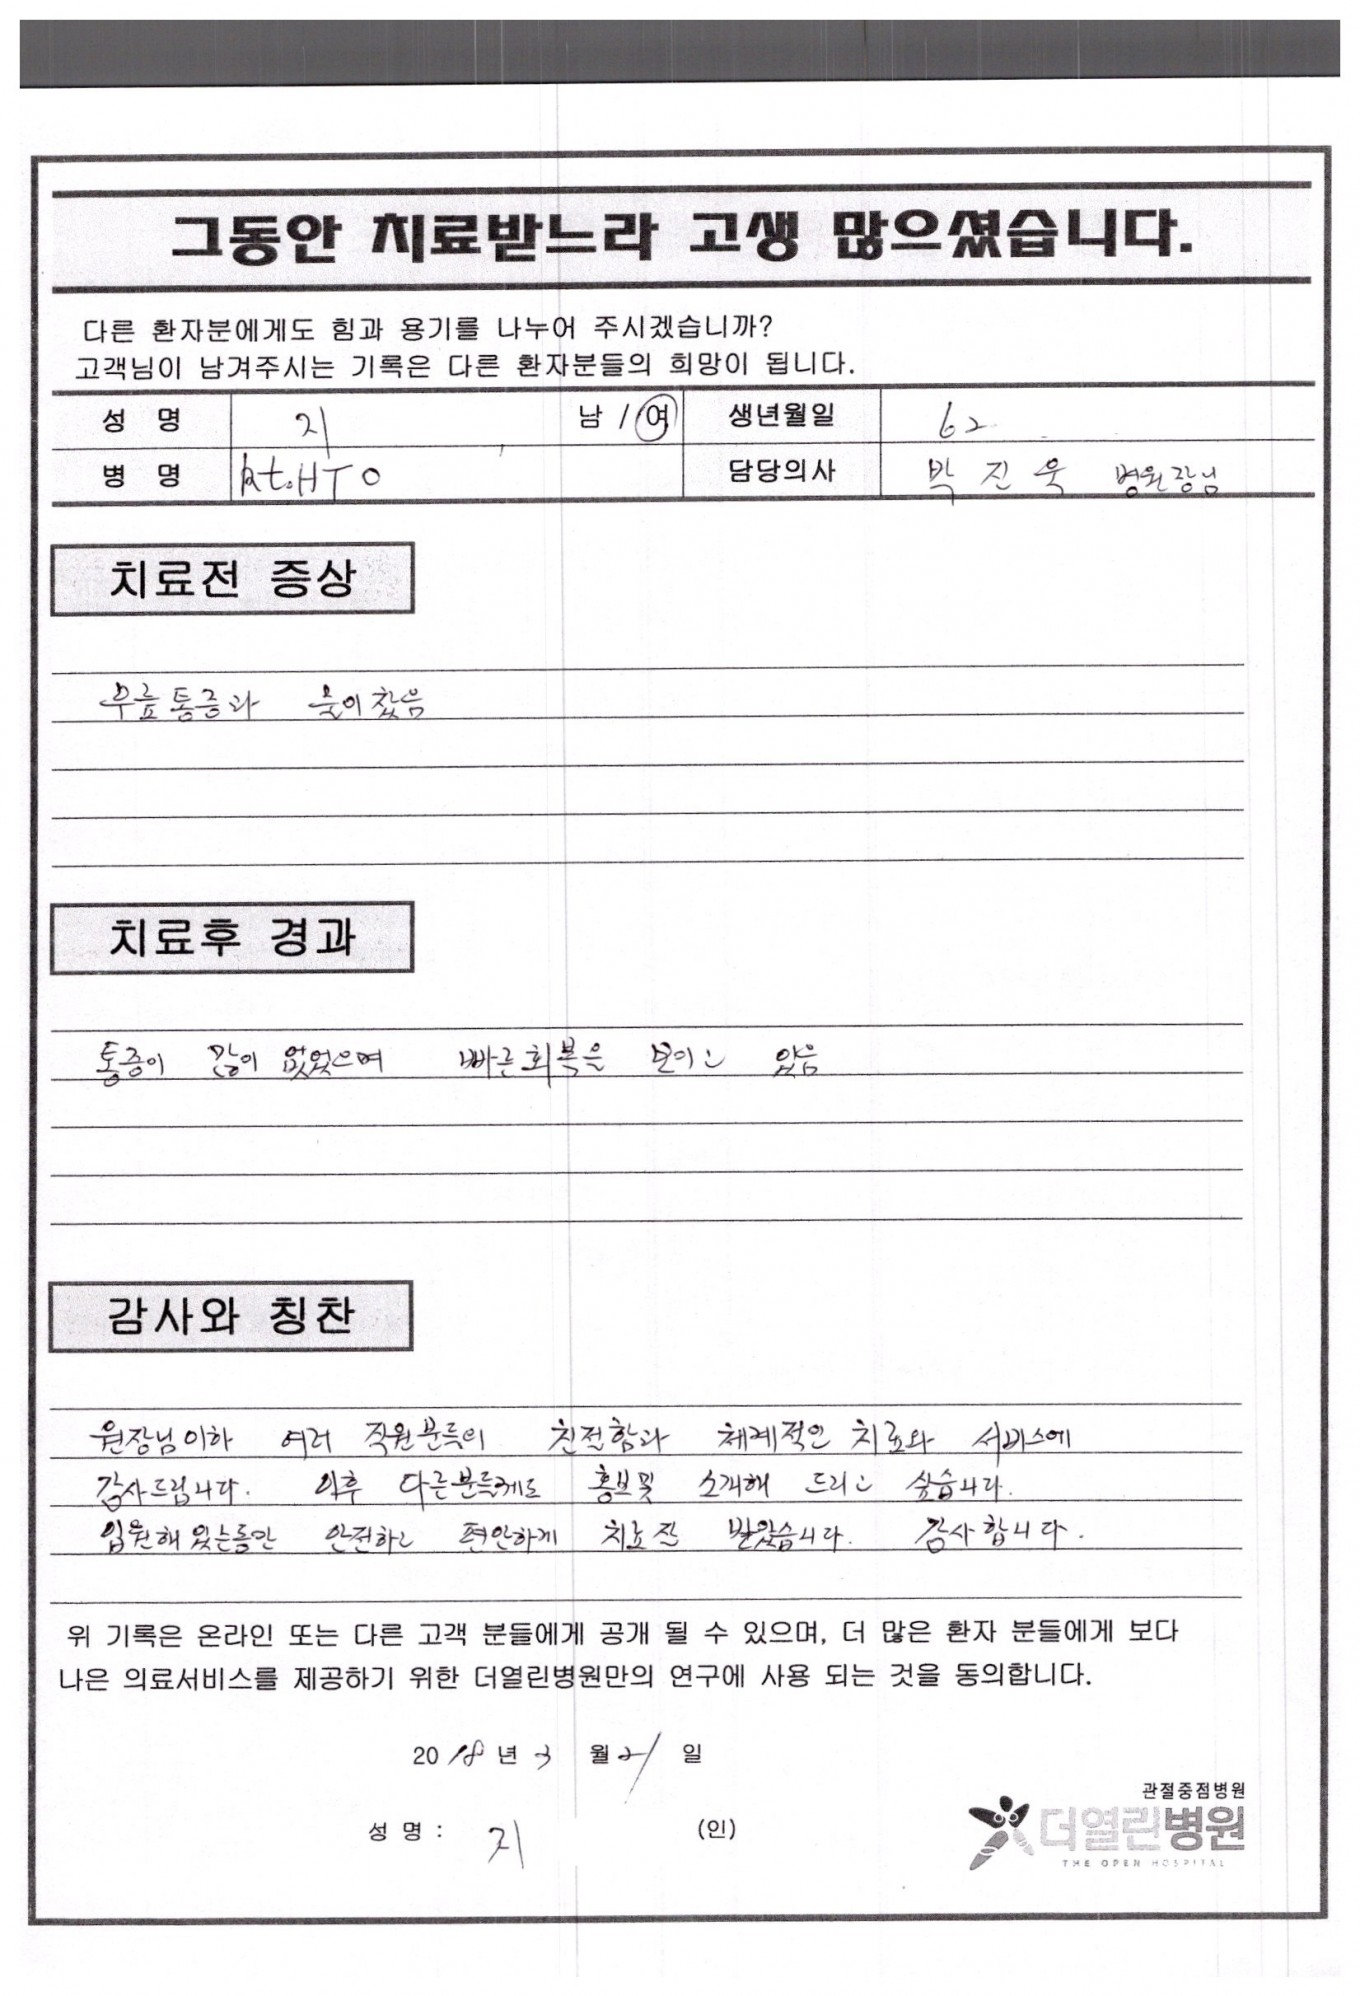 그동안 치료받느라 고생 많으셨습니다.
다른 환자분에게도 힘과 용기를 나누어 주시겠습니까?
고객님이 남겨주시는 기록은 다른 환자분들의 희망이 됩니다.
성 명 지 남 / 여 생년월일 62
병 명 Rt.HTO 담당의사 박 진 욱 병원장님
치료전 증상
무릎통증과 물이찼음
치료후 경과
통증이 많이 없었으며 빠른회복을 보이고 있음
감사와 칭찬
원장님이하 여러 직원분들의 친절함과 체계적인 치료와 서비스에
감사드립니다. 이후 다른분들께도 홍보및 소개해 드리고 싶습니다.
입원해 있는동안 안전하고 편안하게 치료 잘 받았습니다. 감사합니다.
위 기록은 온라인 또는 다른 고객 분들에게 공개 될 수 있으며, 더 많은 환자 분들에게 보다
나은 의료서비스를 제공하기 위한 더열린병원만의 연구에 사용 되는 것을 동의합니다.
2018년 3 월 21 일
성 명 : 지 (인)
관절중점병원
더열린병원
THE OPEN HOSPITAL